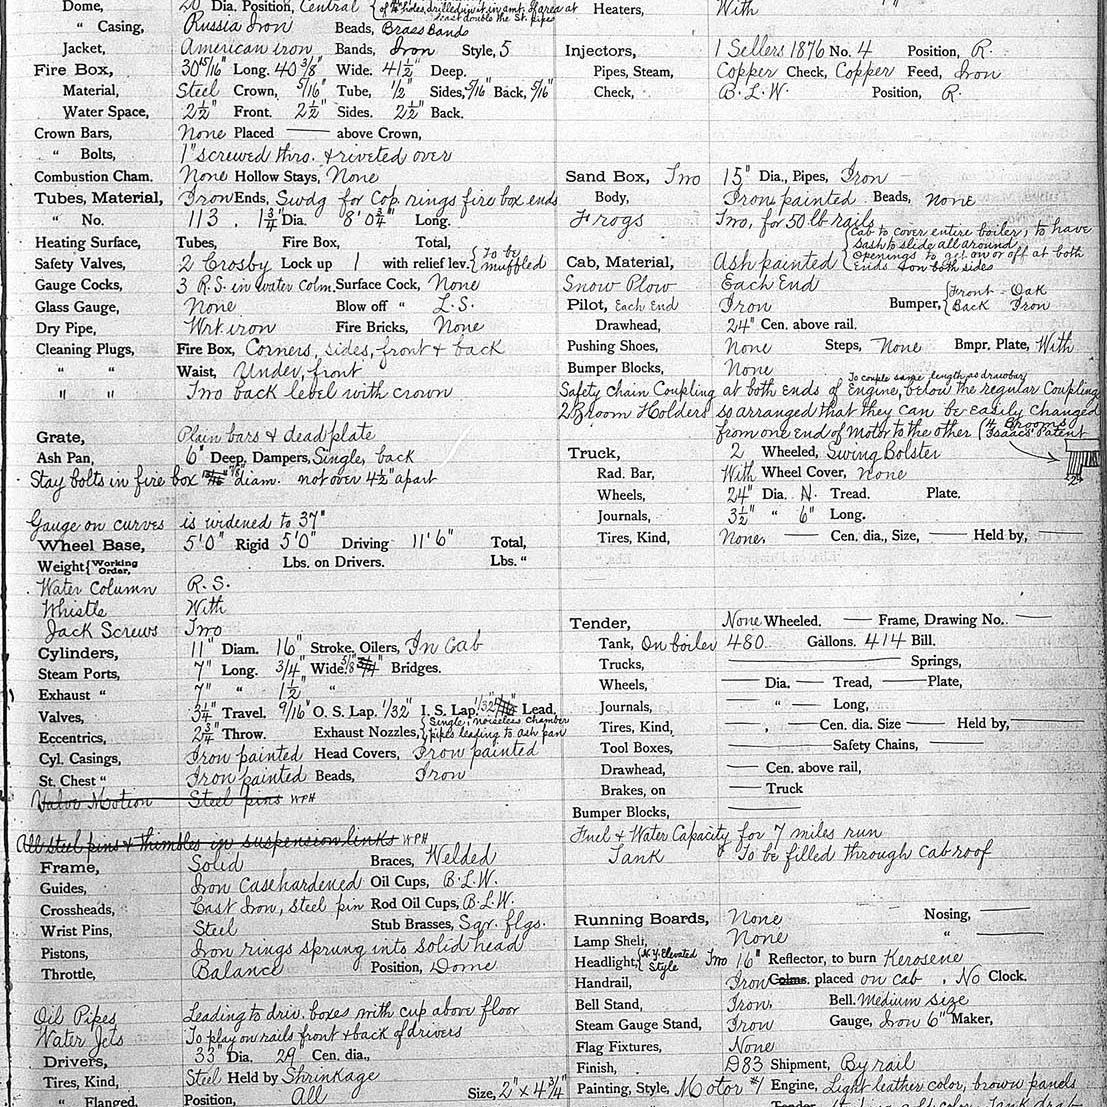 Dome, 20" Dia. Position, Central
" Casing, Russia Iron Beads, Brass Bands
Jacket, American iron Bands, Iron Style, 5
Fire Box, 30 15/16" Long. 40 3/8" Wide. 41 1/2" Deep.
Material, Steel Crown, 5/16" Tube, 1/2" Sides, 5/16" Back, 5/16"
Water Space, 2 1/2" Front. 2 1/2" Sides. 2 1/2" Back.
Crown Bars, None Placed — above Crown,
" Bolts, 1" screwed thro. & riveted over
Combustion Cham. None Hollow Stays, None
Tubes, Material, Iron Ends, Swdg for Cop. rings fire box ends
" No. 113. 1 3/4" Dia. 8' 0 3/4" Long.
Heating Surface, Tubes, Fire Box, Total,
Safety Valves, 2 Crosby Lock up 1 with relief lev. {To be muffled
Gauge Cocks, 3 R.S. in water colm. Surface Cock, None
Glass Gauge, None Blow off " L.S.
Dry Pipe, Wrt iron Fire Bricks, None
Cleaning Plugs, Fire Box, Corners, sides, front & back
" " Waist, Under, front
" " Two back level with crown
Grate, Plain bars & dead plate
Ash Pan, 6" Deep, Dampers, Single, back
Stay bolts in fire box 7/8" diam. not over 4 1/2" apart
Gauge on curves is widened to 37"
Wheel Base, 5'0" Rigid 5'0" Driving 11'6" Total,
Weight {Working Order, Lbs. on Drivers. Lbs. "
Water Column R.S.
Whistle With
Jack Screws Two
Cylinders, 11" Diam. 16" Stroke, Oilers, In Cab
Steam Ports, 7" Long. 3/4" Wide. 5/8" Bridges.
Exhaust " 7" " 1 1/2" "
Valves, 3 1/4" Travel. 9/16" O. S. Lap. 1/32" I. S. Lap. 1/32" Lead,
Eccentrics, 2 3/4" Throw. Exhaust Nozzles, {Single, noiseless chamber pipes leading to ash pan
Cyl. Casings, Iron painted Head Covers, Iron painted
St. Chest " Iron painted Beads, Iron
Valve Motion Steel pins WPH
All steel pins & thimbles in suspension links WPH
Frame, Solid Braces, Welded
Guides, Iron Casehardened Oil Cups, B.L.W.
Crossheads, Cast Iron, steel pin Rod Oil Cups, B.L.W.
Wrist Pins, Steel Stub Brasses, Sqr. flgs.
Pistons, Iron rings sprung into solid head
Throttle, Balance Position, Dome
Oil Pipes Leading to driv. boxes with cup above floor
Water Jets To play on rails front & back of drivers
Drivers, 33" Dia. 29" Cen. dia.,
Tires, Kind, Steel Held by Shrinkage
" Flanged, Position, All Size, 2" x 4 3/4"
Heaters, With "
Injectors, 1 Sellers 1876 No. 4 Position, R.
Pipes, Steam, Copper Check, Copper Feed, Iron
Check, B.L.W. Position, R.
Sand Box, Two 15" Dia., Pipes, Iron
Body, Iron painted Beads, None
Frogs Two, for 50 lb rails
Cab, Material, Ash painted {Cab to cover entire boiler; to have
sash to slide all around
Openings to get on or off at both
ends & on both sides
Snow Plow Each End
Pilot, Each End Iron Bumper, {Front - Oak
Back Iron
Drawhead, 24" Cen. above rail.
Pushing Shoes, None Steps, None Bmpr. Plate, With
Bumper Blocks, None
To couple same length as drawbar
Safety chain Coupling at both ends of Engine, below the regular Coupling
2 Broom Holders so arranged that they can be easily changed
from one end of Motor to the other (4 Brooms
Isaacs Patent
Truck, 2 Wheeled, Swing Bolster
Rad. Bar, With Wheel Cover, None
Wheels, 24" Dia. N. Tread. Plate.
Journals, 3 1/2" " 6" Long.
Tires, Kind, None, — Cen. dia., Size, — Held by, —
Tender, None Wheeled. — Frame, Drawing No. —
Tank, On boiler 480 Gallons. 414 Bill.
Trucks, — Springs,
Wheels, — Dia. — Tread, — Plate,
Journals, — " — Long,
Tires, Kind, — , — Cen. dia. Size — Held by, —
Tool Boxes, — Safety Chains, —
Drawhead, — Cen. above rail,
Brakes, on — Truck
Bumper Blocks, —
Fuel & Water Capacity for 7 miles run
Tank To be filled through cab roof
Running Boards, None Nosing, —
Lamp Shelf, None " —
Headlight, {N.Y. Elevated Style Two 16" Reflector, to burn Kerosene
Handrail, Iron Colms. placed on cab. No Clock.
Bell Stand, Iron, Bell. Medium size
Steam Gauge Stand, Iron Gauge, Iron 6" Maker,
Flag Fixtures, None
Finish, D83 Shipment, By rail
Painting, Style, Motor #1 Engine, Light leather color, brown panels